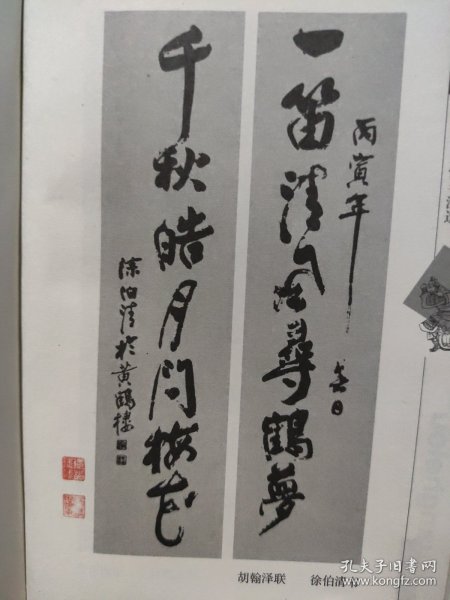 丙寅年
一笛清风寻鹤梦
春日
千秋皓月问梅花
徐伯清於黄鹤楼
胡翰泽联　徐伯清书
孔夫子旧书网